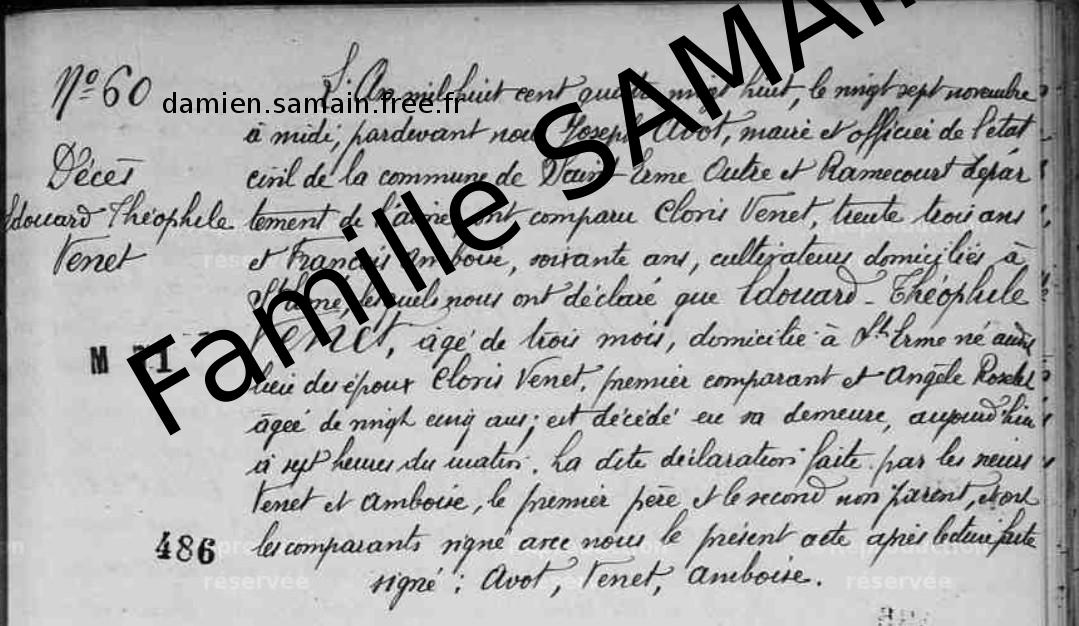 Nº 60
damien.samain.free.fr
L'An mil huit cent quatre vingt huit, le vingt sept novembre
à midi, pardevant nous Joseph Avot, maire et officier de l'état
Décès
civil de la commune de Saint Erme Outre et Ramecourt dépar
Edouard Théophile
tement de l'aisne ont comparu Clovis Venet, trente trois ans
Venet
et François Amboise, soixante ans, cultivateurs domiciliés à
St Erme, lesquels nous ont déclaré que Edouard - Théophile
Venet, âgé de trois mois, domicilié à St Erme né audit
M
lieu des époux Clovis Venet, premier comparant et Angèle
âgée de vingt cinq ans; est décédé en sa demeure, aujourd'hui
à sept heures du matin. La dite déclaration faite par les sieurs
Venet et Amboise, le premier père et le second non parent, et ont
486
les comparants signé avec nous le présent acte après lecture faite
signé : Avot, Venet, Amboise.
Famille SAMAIN
Reproduction
réservée